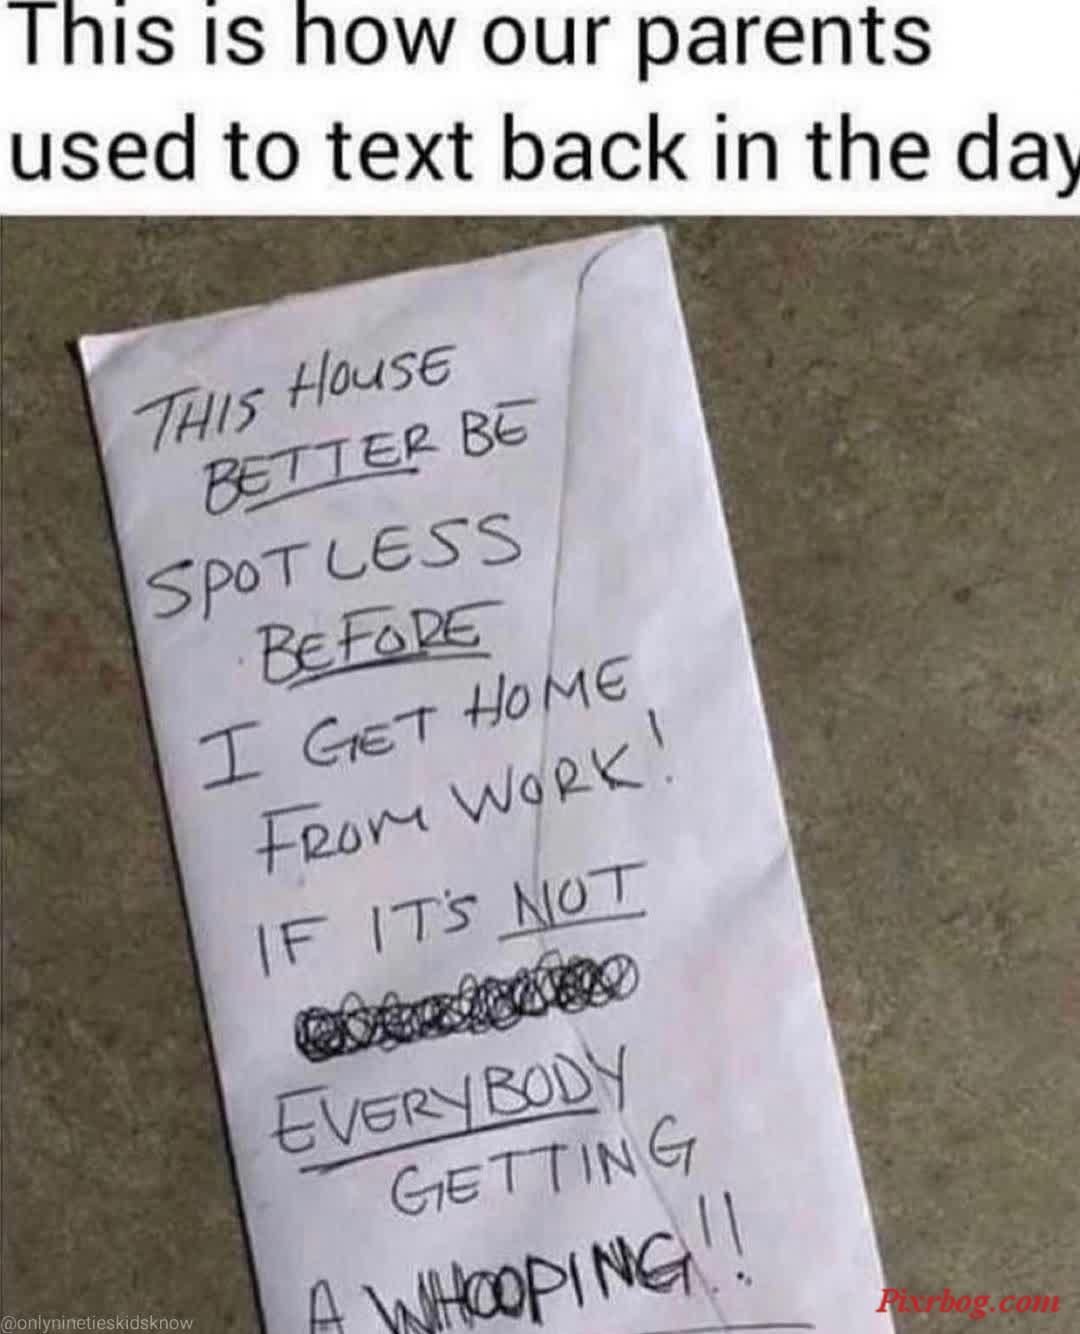 This is how our parents
used to text back in the day
THIS HOUSE
BETTER BE
SPOTLESS
BEFORE
I GET HOME
FROM WORK!
IF IT'S NOT
EVERYBODY
GETTING
A WHOOPING!!
Pixrbog.com
@onlyninetieskidsknow